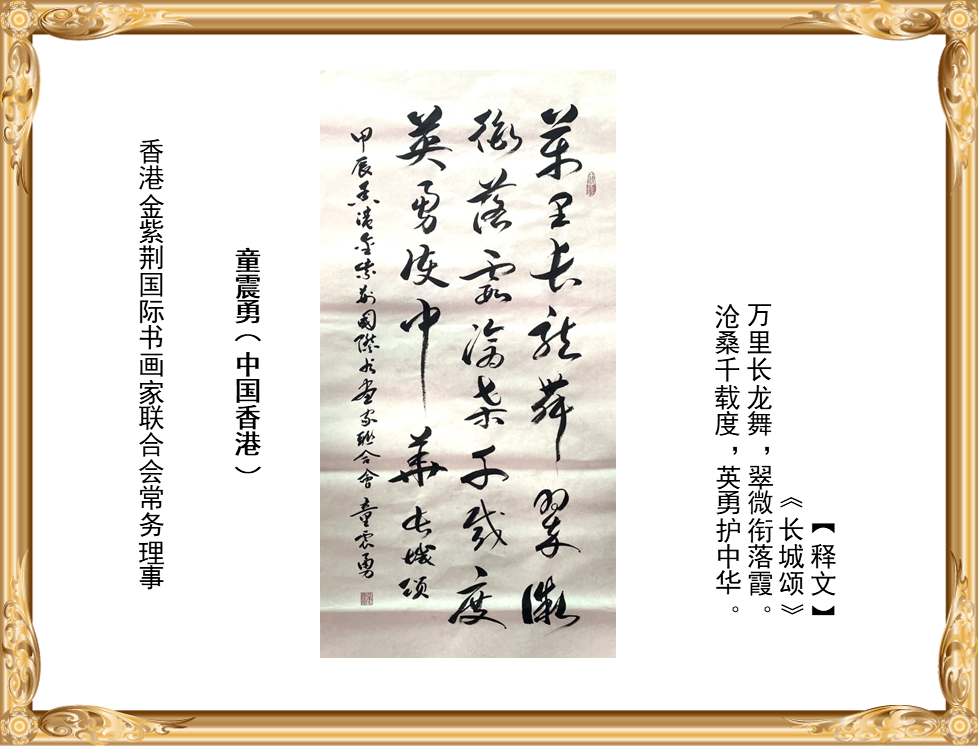 【释文】
《长城颂》
万里长龙舞，翠微衔落霞。
沧桑千载度，英勇护中华。
萬里长龍舞翠微
衔落霞滄桑千载度
英勇護中華长城颂
甲辰香港金紫荆國際书画家联合會 童震勇
童震勇（中国香港）
香港金紫荆国际书画家联合会常务理事